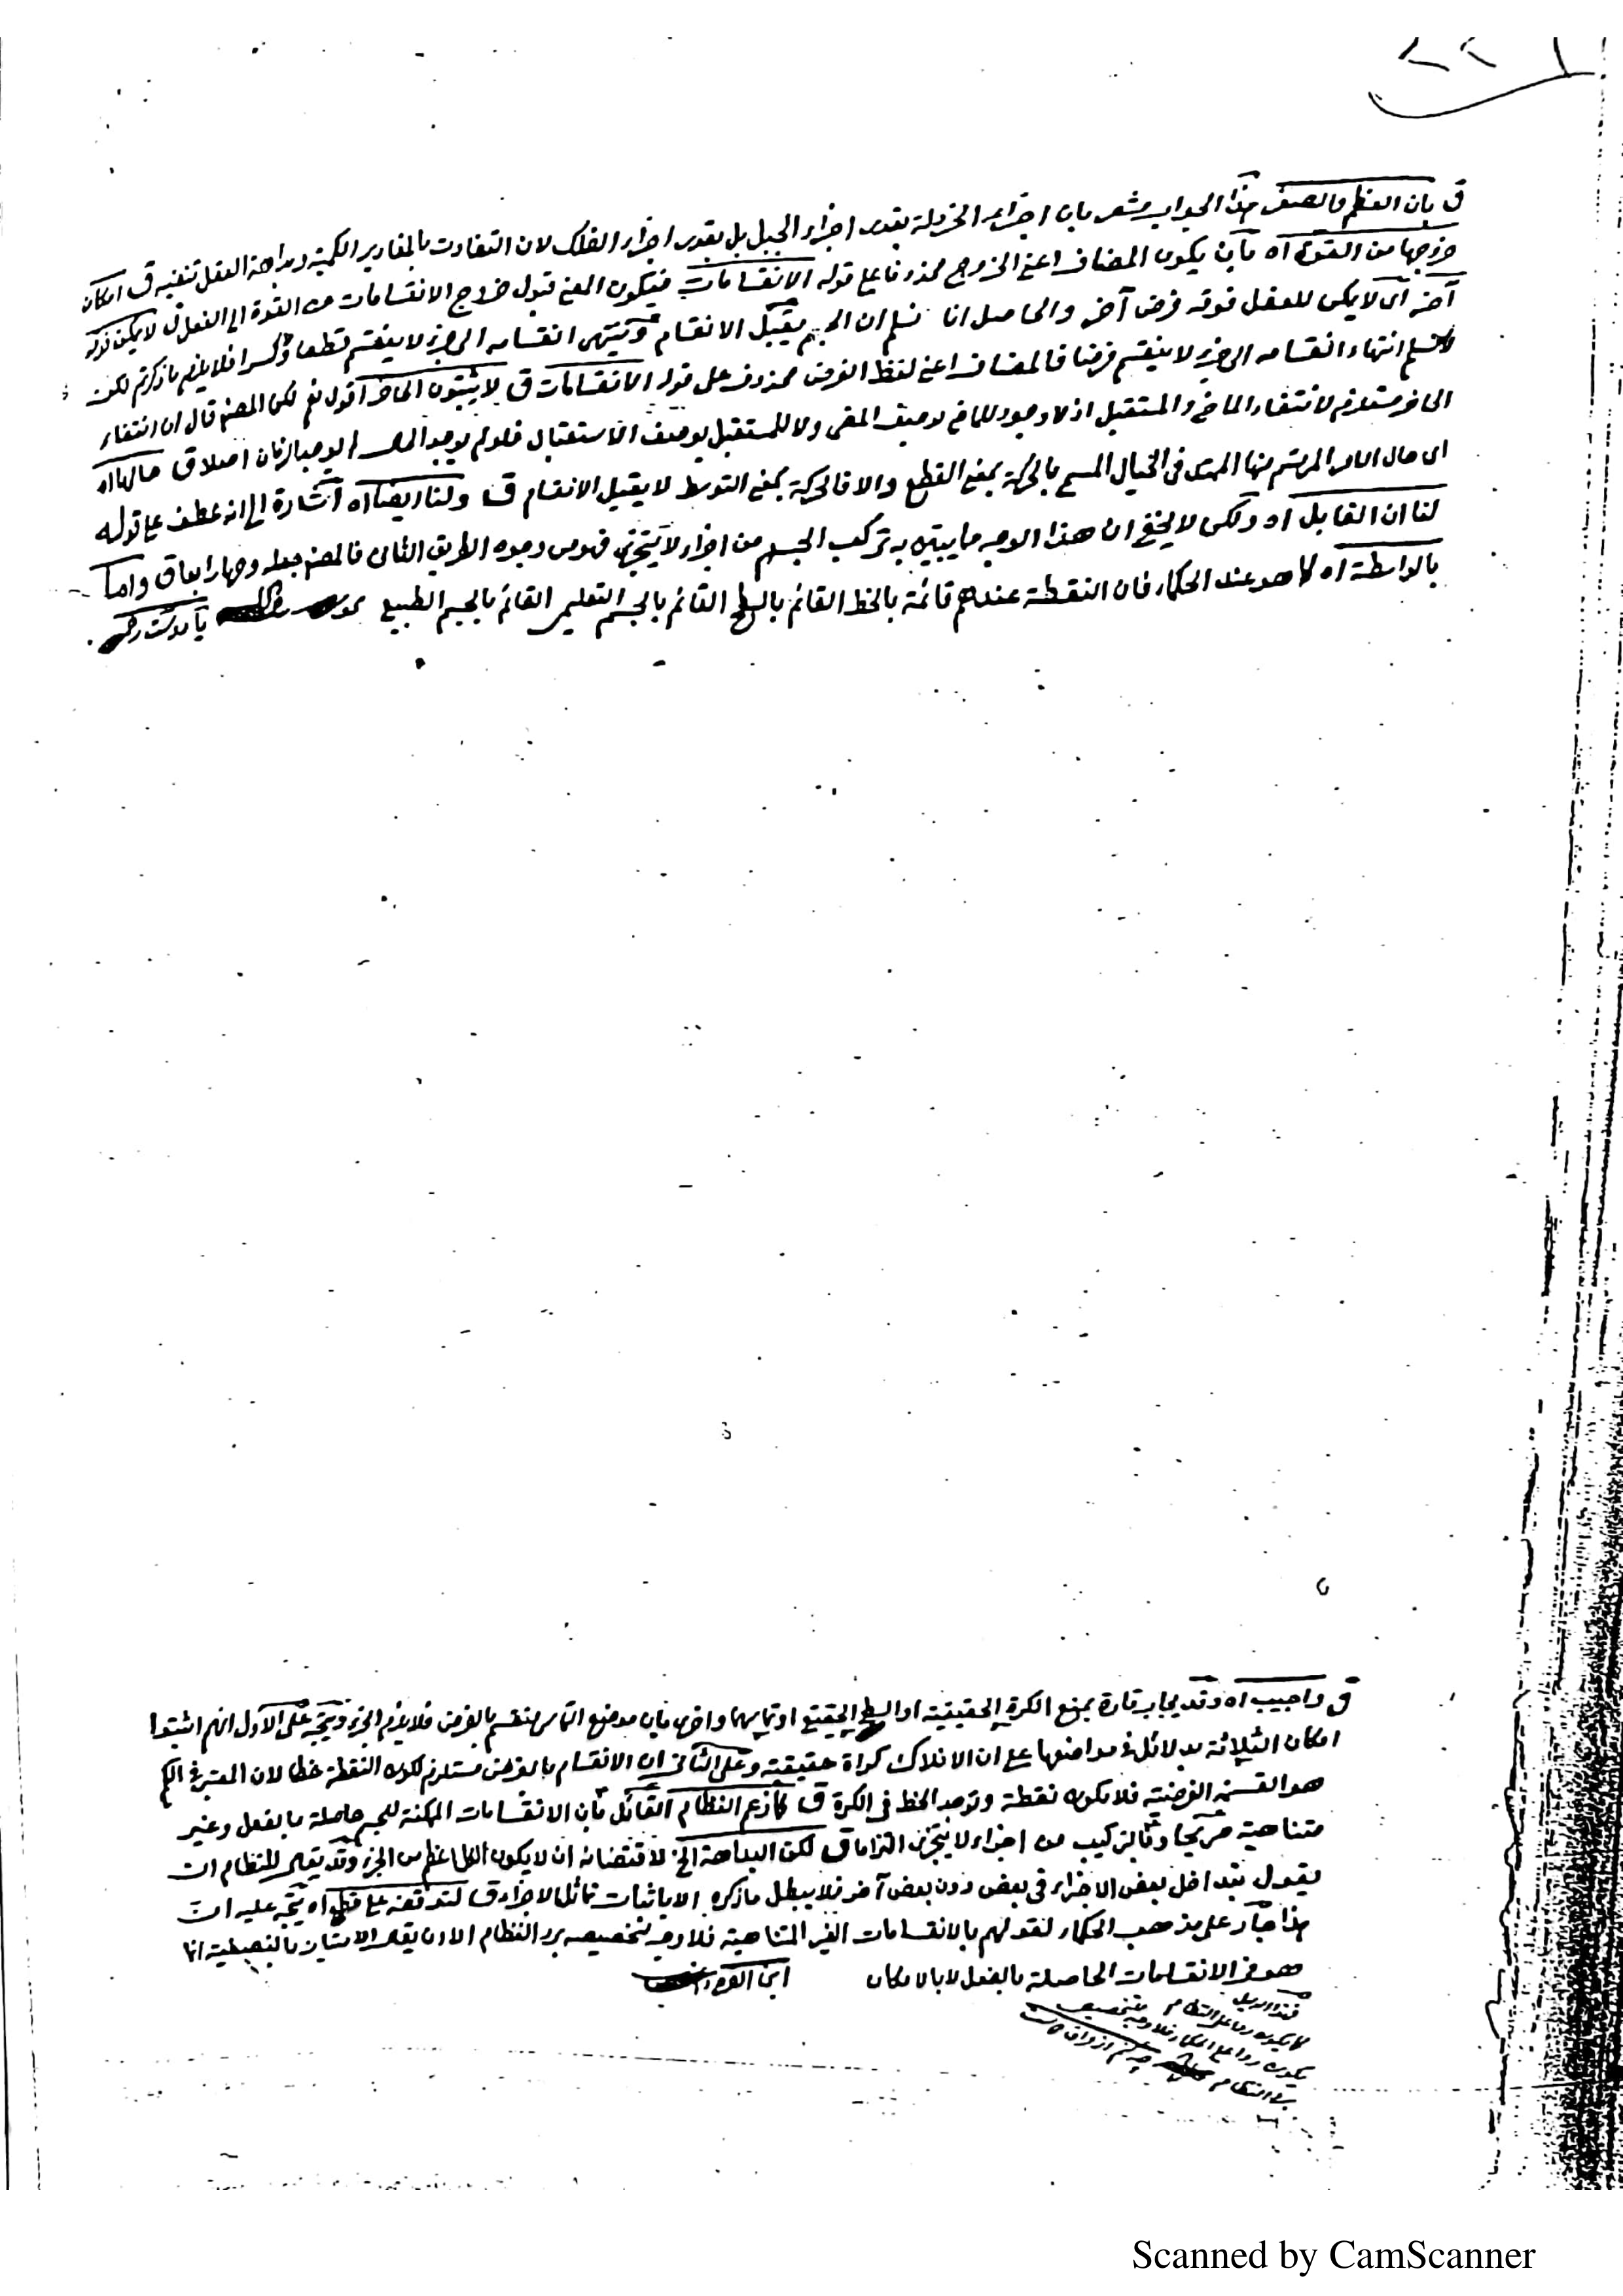 ٢٢١
ق بان العظم والصغر هذا الجواب يشعر بان اجزاء الخردلة بقدر اجزاء الجبل بل بقدر اجزاء الفلك لان التفاوت بالمقادير الكمية وبداهة العقل تنفيه ق امكان
خروجها من القوة اه بان يكون المضاف اعني الخروج محذوفا على قوله الانقسامات فيكون المعنى قبول خروج الانقسامات من القوة الى الفعل ق لا يمكن فوقه
آخر اى لا يمكن للعقل فوقه فرض آخر والحاصل انا نسلم ان الجسم يقبل الانقسام وينتهى انقسامه الى جزء لا ينقسم قطعا وكسرا فلا يلزم ما ذكرتم لكن
لا نسلم انتهاء انقسامه الى جزء لا ينقسم فرضا فالمضاف اعني لفظ الفرض محذوف على قوله الانقسامات ق لا يثبتون الحاضر اقول نعم لكن المصنف قال ان انتفاء
الحاضر مستلزم لانتفاء الماضي والمستقبل اذ لا وجود للماضي بوصف المضى ولا للمستقبل بوصف الاستقبال فلو لم يوجد الحاضر لم يوجد الزمان اصلا ق حالها اه
اى حال الامر المرتسم منها الممتد فى الخيال المسمى بالحركة بمعنى القطع والا فالحركة بمعنى التوسط لا يقبل الانقسام ق ولنا ايضا اه اشارة الى انه عطف على قوله
لنا ان القابل اه ولكن لا يخفى ان هذا الوجه مما يبتنى به تركب الجسم من اجزاء لا يتجزى فهو من وجوه الطريق الثانى فالمصنف جعله وجها رابعا ق واما
بالواسطة اه كما هو عند الحكماء فان النقطة عندهم قائمة بالخط القائم بالسطح القائم بالجسم التعليمى القائم بالجسم الطبيعى
ق واجيب اه وقد يجاب تارة بمنع الكرة الحقيقية او السطح الحقيقى او تماسهما واخرى بان موضع التماس منقسم بالفرض فلا يلزم الجزء ويتجه على الاول انهم اثبتوا
امكان الثلاثة بدلائل فى مواضعها على ان الافلاك كراة حقيقية وعلى الثانى ان الانقسام بالفرض مستلزم لكون النقطة خطا لان المعتبر فى الكم
هو القسمة الفرضية فلا يكون نقطة ويوجد الخط فى الكرة ق كما زعم النظام القائل بان الانقسامات الممكنة للجسم حاصلة بالفعل وغير
متناهية صريحا وبالتركيب من اجزاء لا يتجزى التزاما ق لكن البداهة الخ لاقتضائه ان لا يكون الكل اعظم من الجزء وقد يقال للنظام ان
يقول بتداخل بعض الاجزاء فى بعض دون بعض آخر فلا يبطل ما ذكره الا باثبات تماثل الاجزاء ق لتوقفه على قطع اه يتجه عليه ان
هذا جار على مذهب الحكماء لقولهم بالانقسامات الغير المتناهية فلا وجه لتخصيصه برد النظام الا ان يقال الامتيان بالنصفية انما
هو فى الانقسامات الحاصلة بالفعل لا بالامكان ابن القره داغى
فهذا الدليل
كما يكون ردا على النظام
يكون ردا على الحكماء فلا وجه لتخصيصه
برد النظام